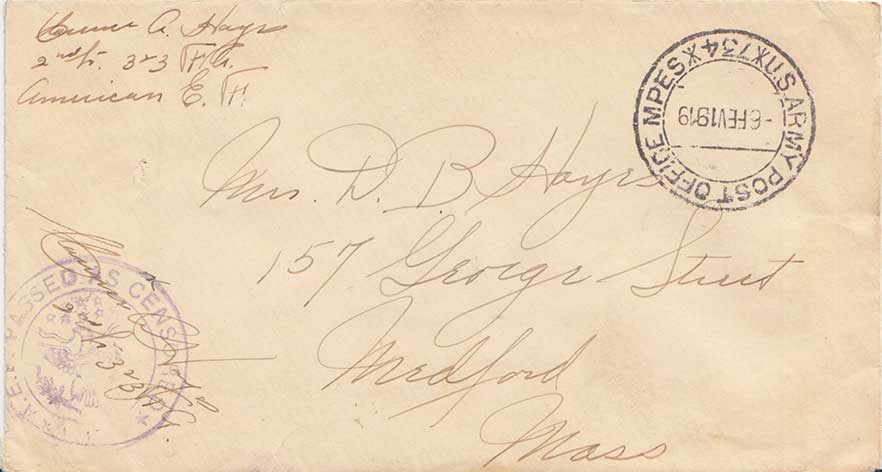 A. Hays
2nd Lt. 323 F.A.
American E. F.
U.S. ARMY POST OFFICE M.P.E.S. 734
-6 FEV 1919
Mrs. D. B. Hays
157 George Street
Medford
Mass
A.E.F. PASSED AS CENSORED
2nd Lt. 323 F.A.